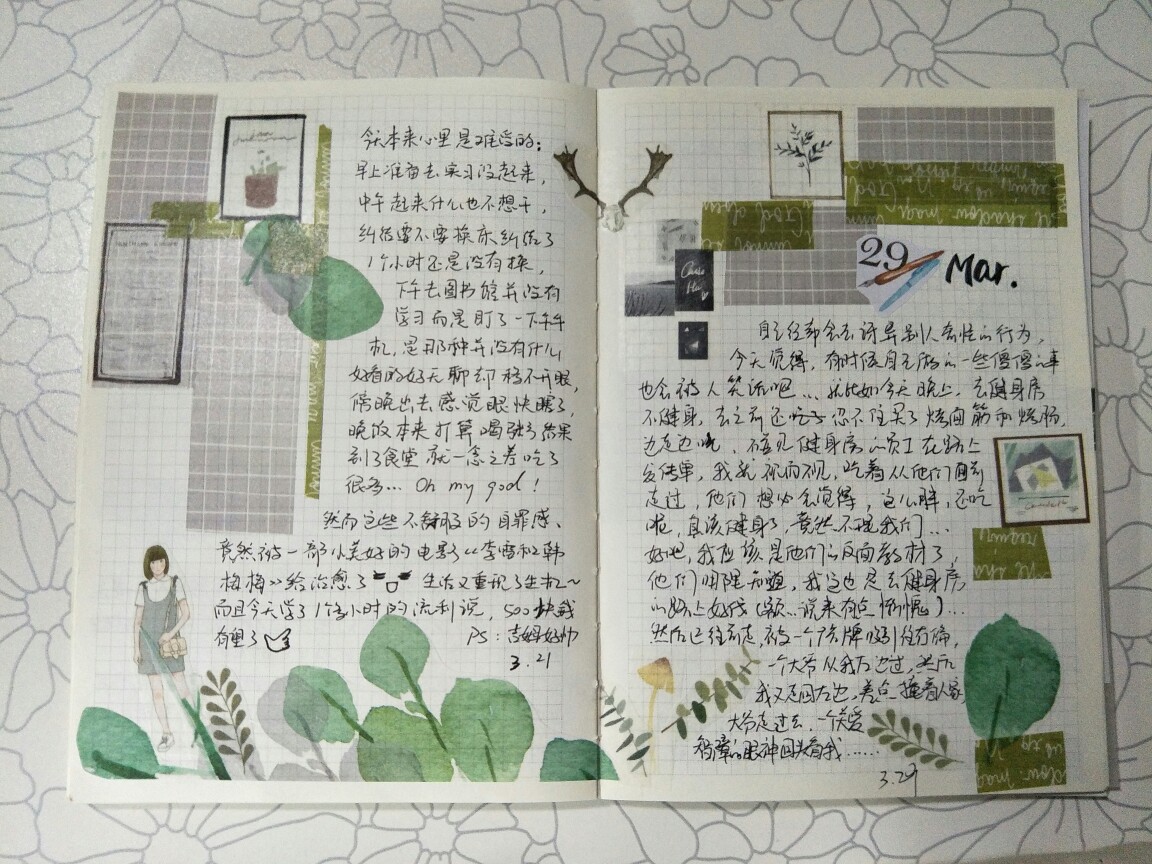 今天本来心里是难受的：
早上准备去实习没起来，
中午起来什么也不想干，
纠结要不要换床纠结了
1个小时还是没有换，
下午去图书馆并没有
学习而是盯了一下午手
机，是那种并没有什么
好看的好天聊却移不开眼，
傍晚出去感觉眼快瞎了，
晚饭本来打算喝粥了结果
到了食堂就一念之差吃了
很多... Oh my god!
然而这些不舒服的自罪感、
竟然被一部小美好的电影《李雷和韩
梅梅》给治愈了 生活又重现了生机~
而且今天学了1个多小时的流利说，500块我
有望了
PS：吉姆好帅
3.21
29 Mar.
自己经常会去讶异别人奇怪的行为，
今天觉得，有时候自己做的一些傻傻的事
也会被人笑话吧... 就比如今天晚上，去健身房
不健身，去之前还忍不住买了烤面筋和烤肠，
边走边吃，不管见健身房的员工在路上
发传单，我就视而不见，吃着从他们面前
走过，他们想必会觉得，这么胖，还吃
呢，真该健身了，竟然不理我们...
好吧，我应该是他们的反面教材了，
他们明显知道，我这也是去健身房
的路上好伐（额...说来有点惭愧）...
然后已往前走，被一个广告牌吸引住右偏，
一个大爷从我左边过，然后
我又走回左边，差点撞着人家，
大爷走过去，一个关爱
智障的眼神回头看我......
3.29